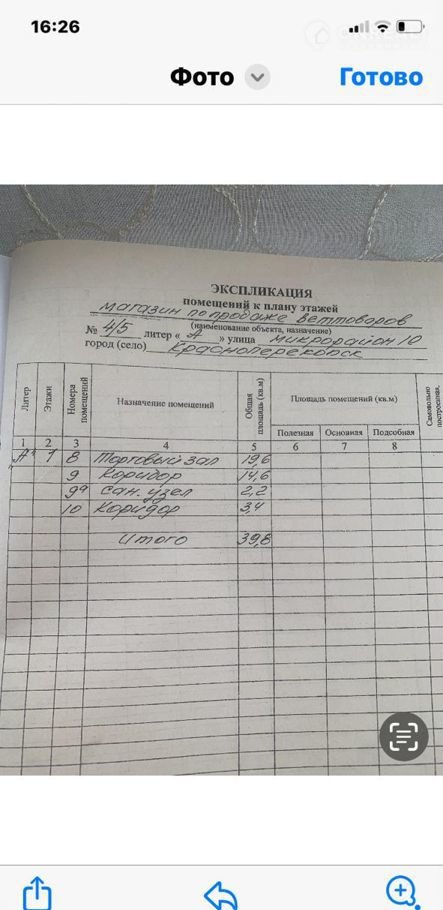 16:26
Фото
Готово
ЭКСПЛИКАЦИЯ
помещений к плану этажей
магазин по продаже ветtоваров
(наименование объекта, назначение)
№ 4/5 литер « А » улица микрорайон 10
город (село) Красноперекопск
Литер Этажи Номера помещений Назначение помещений Общая площадь (кв.м) Площадь помещений (кв.м) Самовольно построенная,
Полезная Основная Подсобная
1 2 3 4 5 6 7 8
"А" 1 8 Торговый зал 19,6
9 Коридор 14,6
9а сан. узел 2,2
10 Коридор 3,4
Итого 39,8